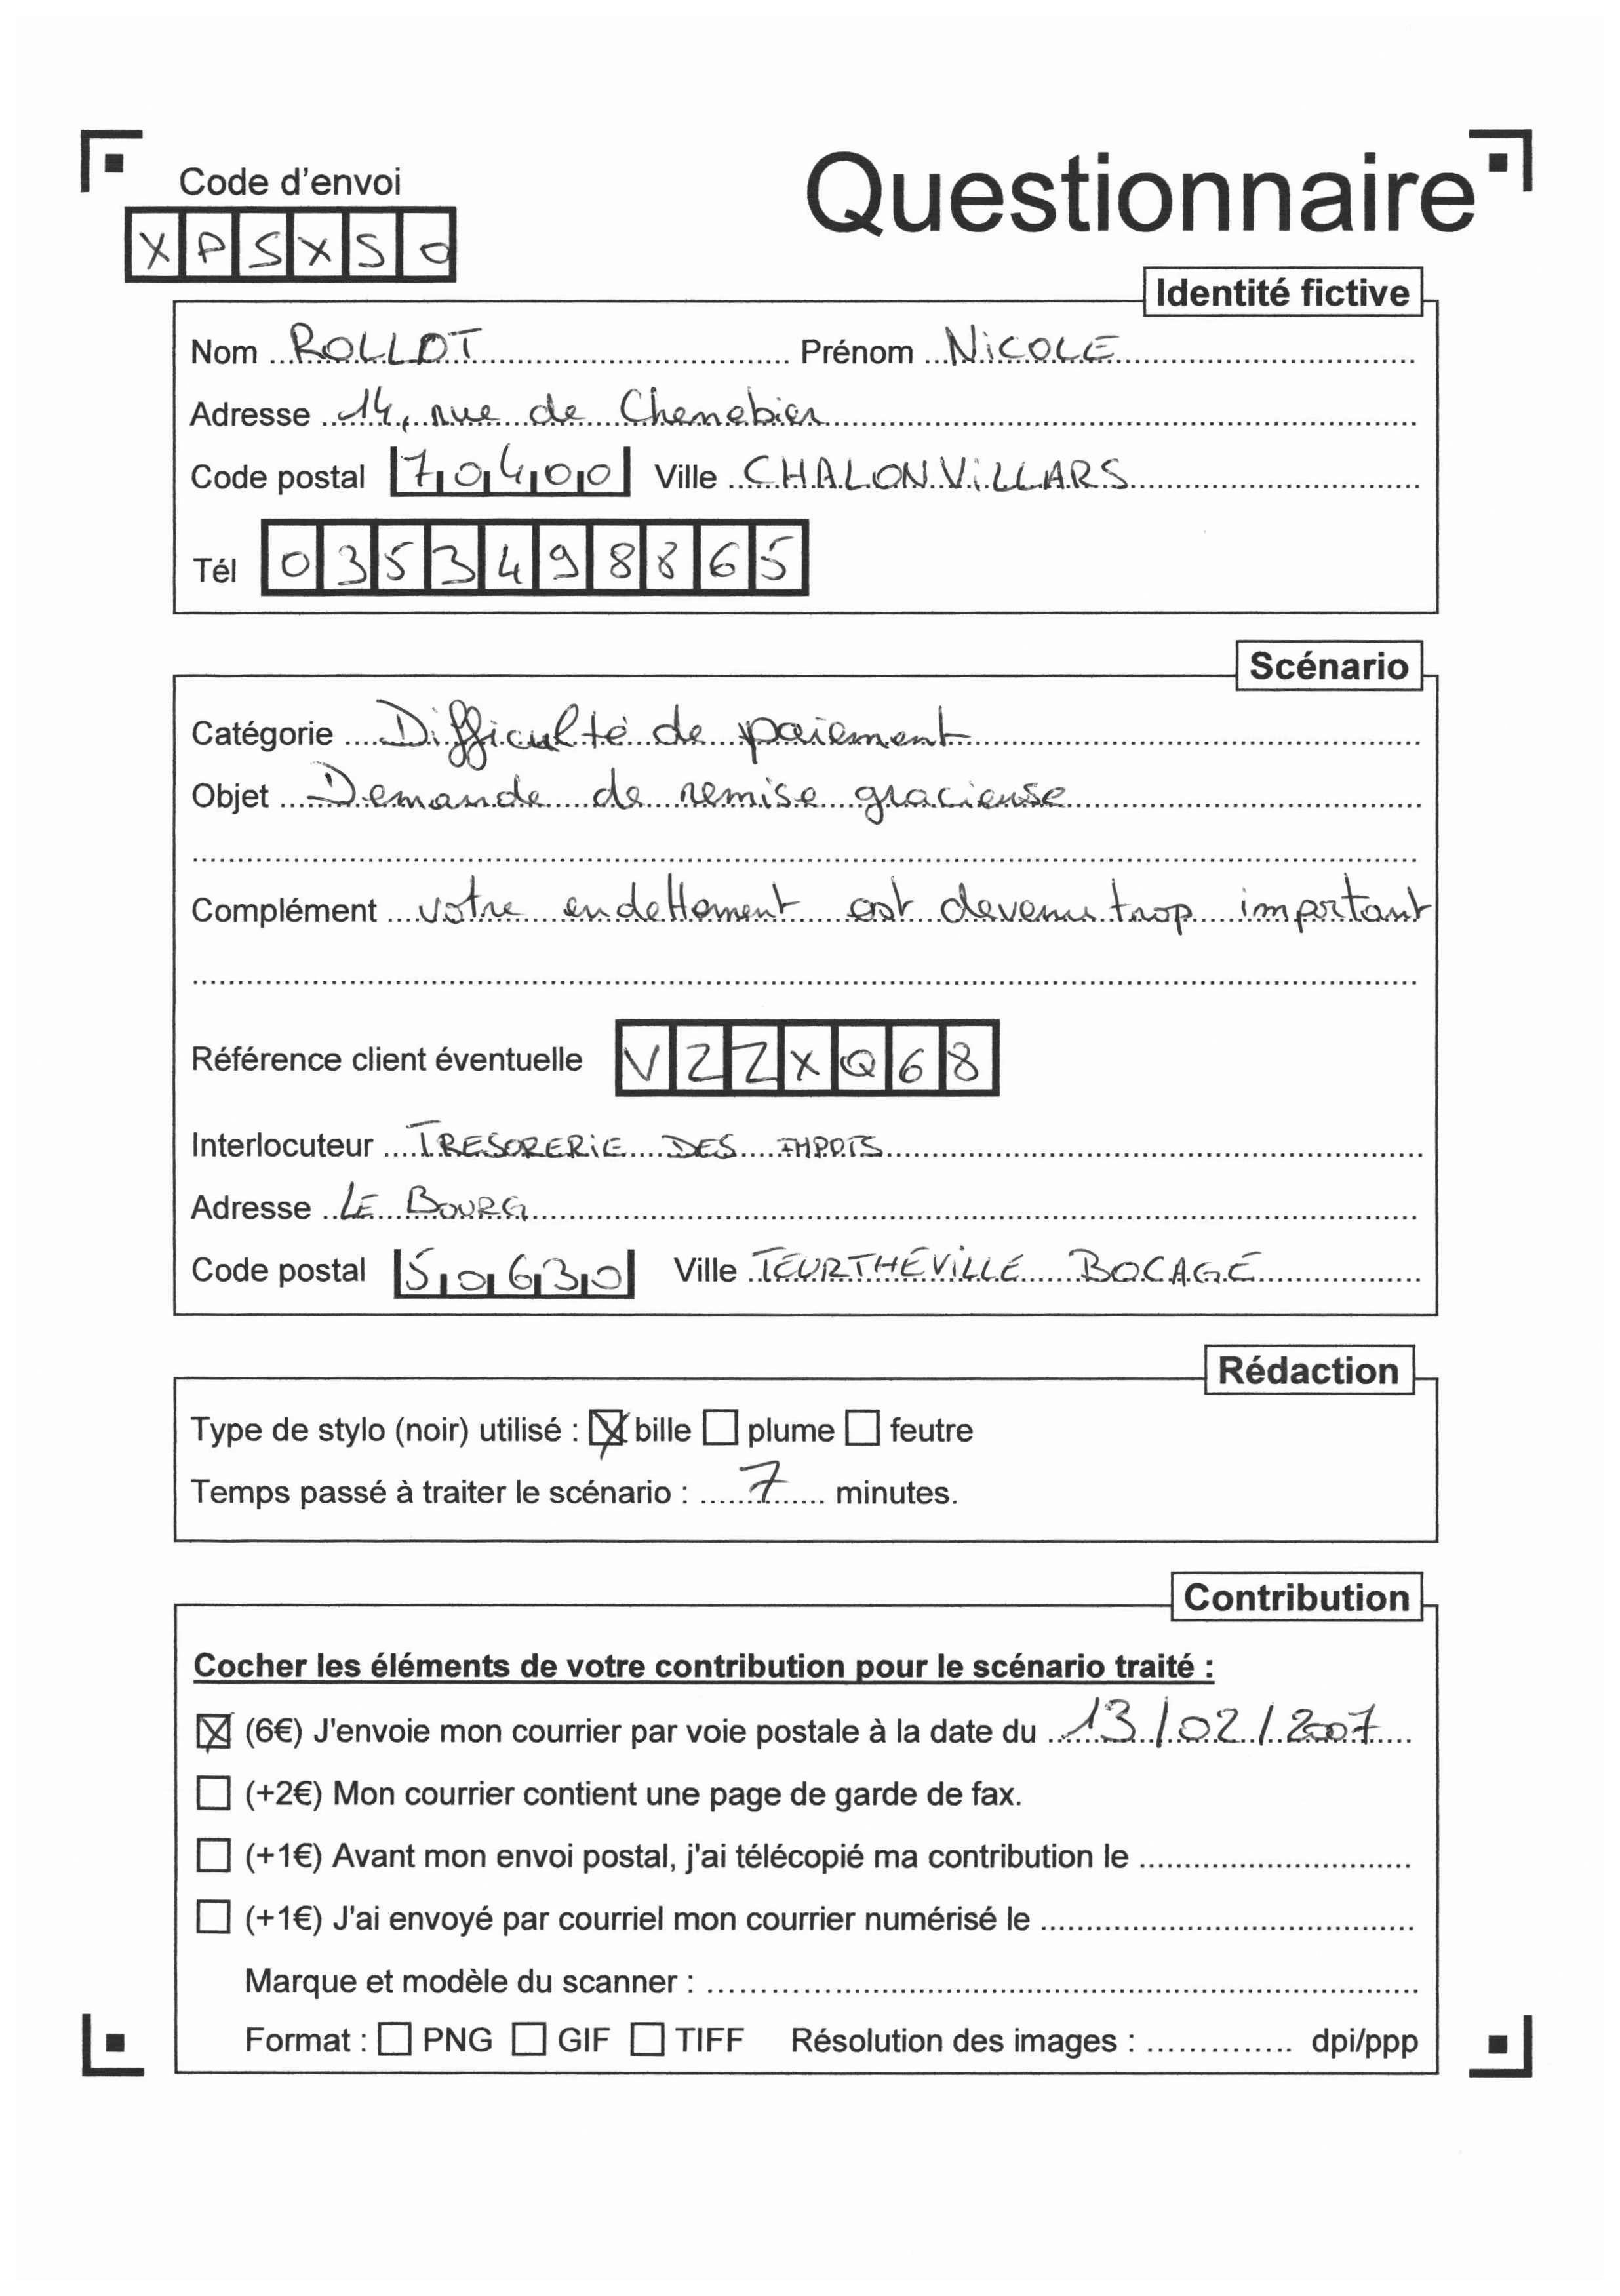 Code d'envoi
Questionnaire
XPSXSO
Identité fictive
Nom ROLLOT Prénom NiCOLE
Adresse 14, rue de Chenebier
Code postal 70400 Ville CHALONViLLARS
Tél 0353498865
Scénario
Catégorie Difficulté de paiement
Objet Demande de remise gracieuse
Complément votre endettement est devenu trop important
Référence client éventuelle VZZXQ68
Interlocuteur TRESORERiE DES IMPOTS
Adresse LE BOURG
Code postal 50630 Ville TEURTHÉViLLE BOCAGE
Rédaction
Type de stylo (noir) utilisé : bille plume feutre
Temps passé à traiter le scénario : 7 minutes.
Contribution
Cocher les éléments de votre contribution pour le scénario traité :
(6€) J'envoie mon courrier par voie postale à la date du 13/02/2007
(+2€) Mon courrier contient une page de garde de fax.
(+1€) Avant mon envoi postal, j'ai télécopié ma contribution le
(+1€) J'ai envoyé par courriel mon courrier numérisé le
Marque et modèle du scanner :
Format : PNG GIF TIFF Résolution des images : dpi/ppp